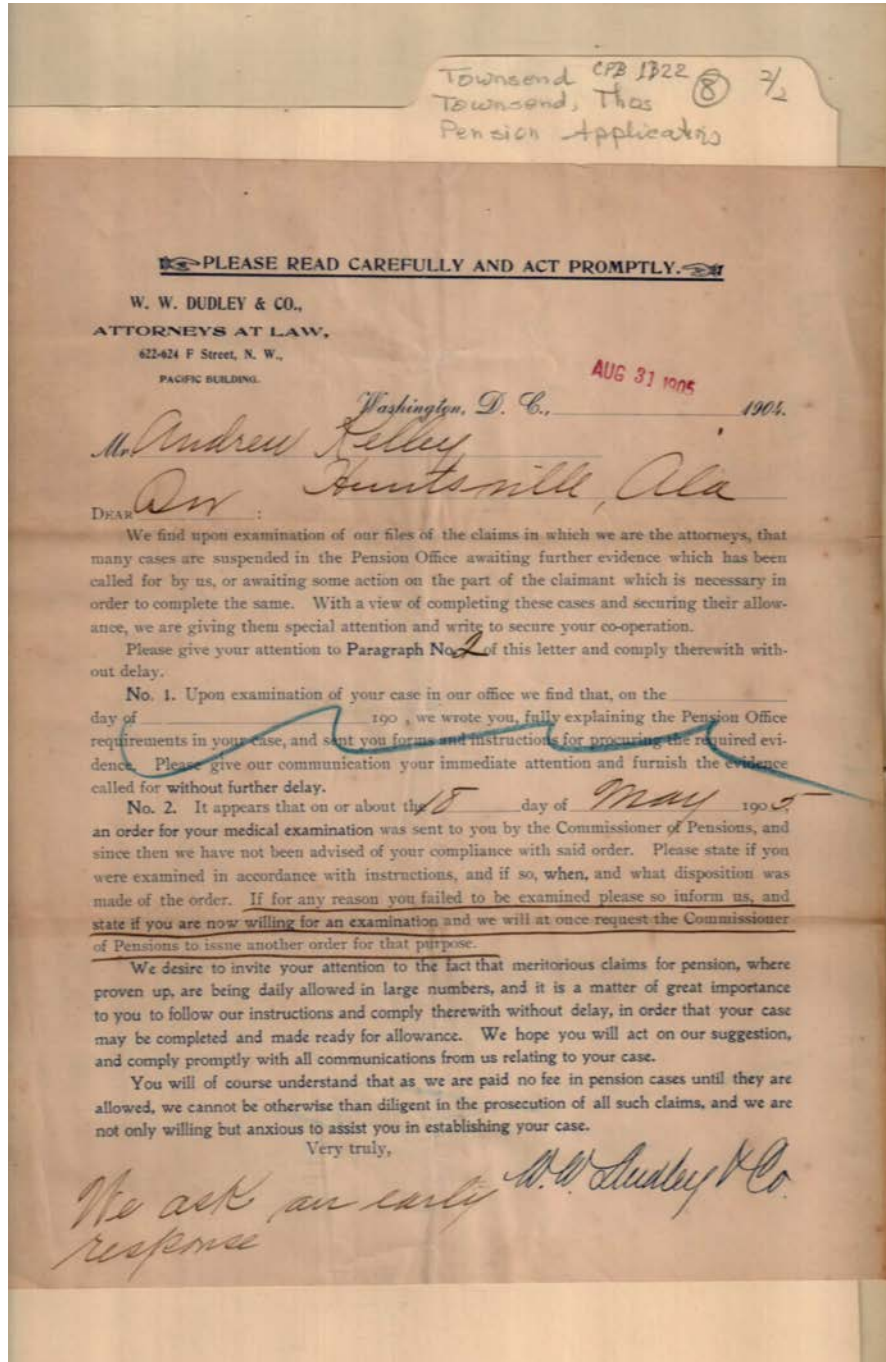 Townsend CPB 1B22 8 2/2
Townsend, Thos
Pension Applications
PLEASE READ CAREFULLY AND ACT PROMPTLY.
W. W. DUDLEY & CO.,
ATTORNEYS AT LAW,
622-624 F Street, N. W.,
PACIFIC BUILDING.
AUG 31 1905
Washington, D. C., 1904.
Mr. Andrew Kelley
Huntsville, Ala
DEAR Sir :
We find upon examination of our files of the claims in which we are the attorneys, that
many cases are suspended in the Pension Office awaiting further evidence which has been
called for by us, or awaiting some action on the part of the claimant which is necessary in
order to complete the same. With a view of completing these cases and securing their allow-
ance, we are giving them special attention and write to secure your co-operation.
Please give your attention to Paragraph No. 2 of this letter and comply therewith with-
out delay.
No. 1. Upon examination of your case in our office we find that, on the
day of 190 , we wrote you, fully explaining the Pension Office
requirements in your case, and sent you forms and instructions for procuring the required evi-
dence. Please give our communication your immediate attention and furnish the evidence
called for without further delay.
No. 2. It appears that on or about the 18 day of May 1905,
an order for your medical examination was sent to you by the Commissioner of Pensions, and
since then we have not been advised of your compliance with said order. Please state if you
were examined in accordance with instructions, and if so, when, and what disposition was
made of the order. If for any reason you failed to be examined please so inform us, and
state if you are now willing for an examination and we will at once request the Commissioner
of Pensions to issue another order for that purpose.
We desire to invite your attention to the fact that meritorious claims for pension, where
proven up, are being daily allowed in large numbers, and it is a matter of great importance
to you to follow our instructions and comply therewith without delay, in order that your case
may be completed and made ready for allowance. We hope you will act on our suggestion,
and comply promptly with all communications from us relating to your case.
You will of course understand that as we are paid no fee in pension cases until they are
allowed, we cannot be otherwise than diligent in the prosecution of all such claims, and we are
not only willing but anxious to assist you in establishing your case.
Very truly,
W. W. Dudley & Co.
We ask an early
response